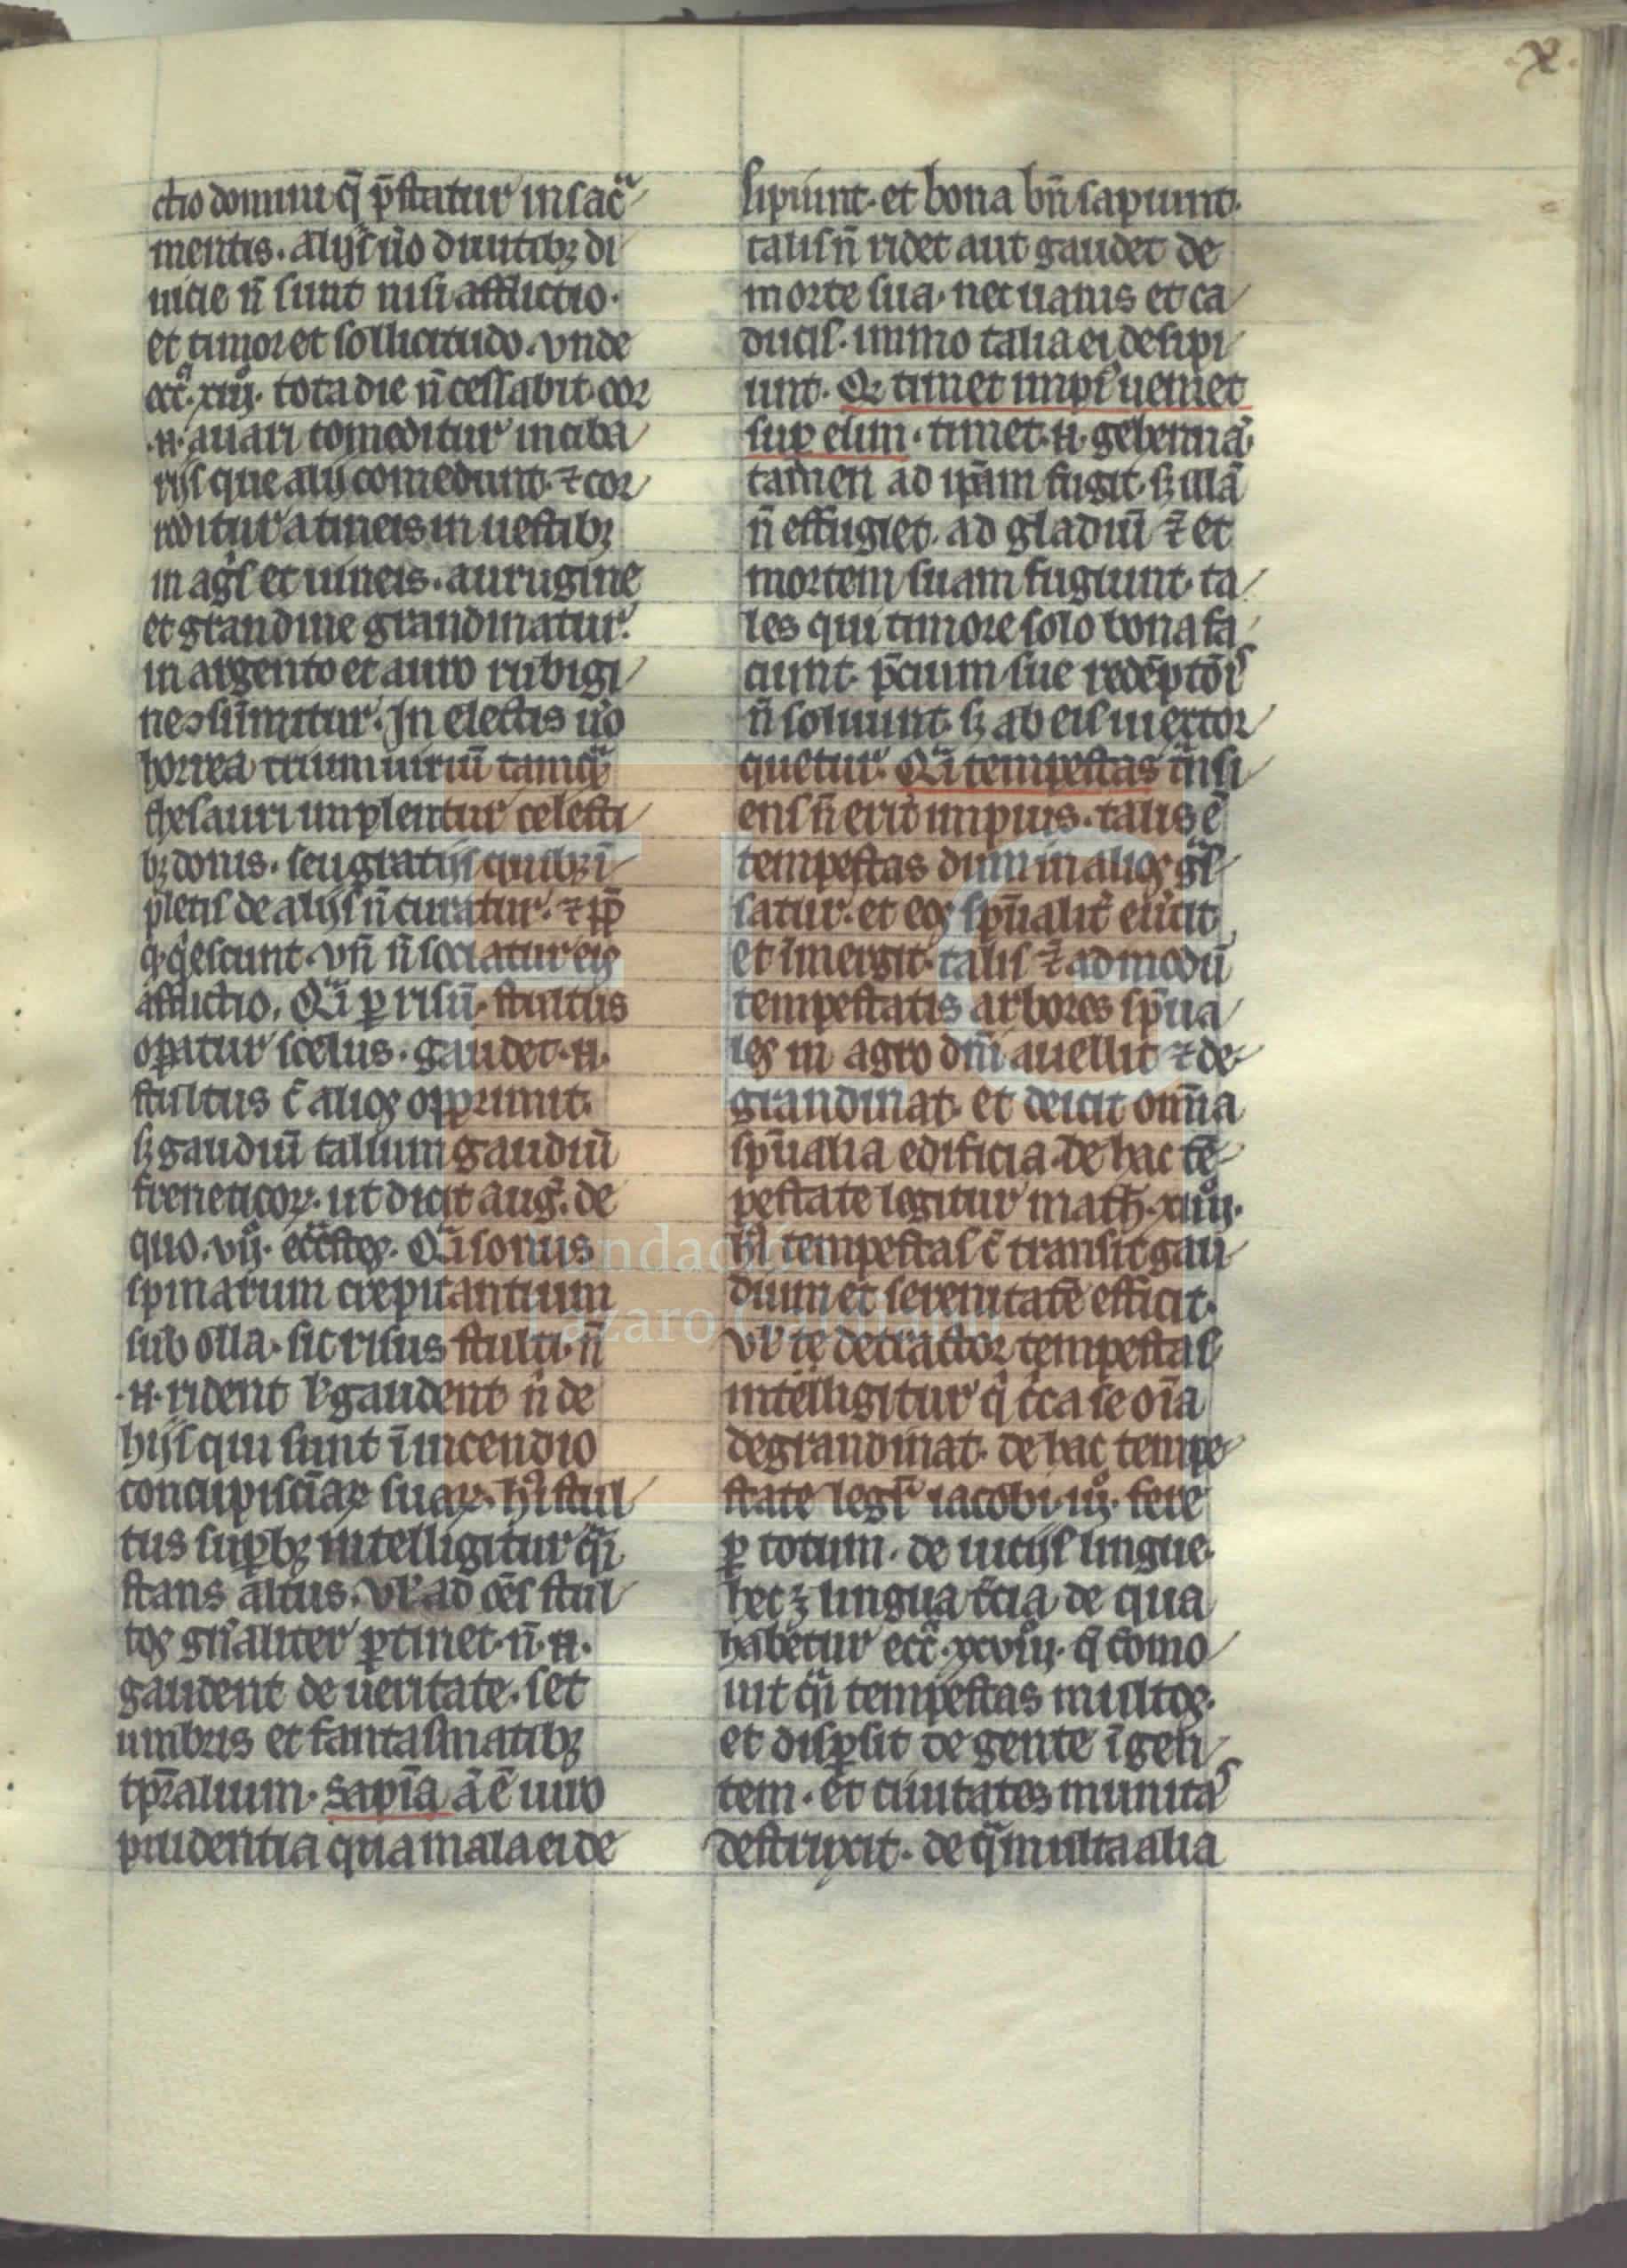 .x.
ctio domini q̄ p̄statur in sac̄ᵃ
mentis. alijs ůo diuitibꝫ di
uicie n̄ sunt nisi afflictio.
et timor et sollicitudo. vnde
ecc̄. xiiij. tota die n̄ cessabit. cor
.n. auari comeditur in ciba
rijs que alij comedunt. ⁊ cor
roditur a tineis in uestibꝫ
in agⁱs et uineis. aurugine
et grandine grandinatur.
in argento et auro rubigi
ne ↄsūmitur. In electis ůo
horrea trium uiriū tamqᵃ
thesauri implentur celesti
bꝫ donis. seu gratijs quibꝫ ī
pletis de alijs n̄ curatur. ⁊ ꝓp̄
qⁱescunt. vn̄ n̄ sociatur eis
afflictio. Qᵃi ꝑ risū. stultus
oꝑatur scelus. gaudet .n.
stultus c̄ alios opprimit.
sꝫ gaudiū talium gaudiū
freneticoꝝ. ut dicit aug᷑. de
quo. vij. ecc̄stes. Qᵃi sonus
spinarum crepitantium
sub olla. sic risus stulti. n̄
.n. rident ł gaudent n̄ de
hijs qui sunt ī incendio
concupisciāꝝ suaꝝ. hⁱ stul
tus suꝑbꝫ intelligitur qᵃi
stans altus. vł ad oēs stul
tos gn̄aliter ꝑtinet. n̄ .n.
gaudent de ueritate. set
umbris et fantasmatibꝫ
tp̄ralium. Sapīa āē uiro
prudentia qua mala ei de
sipiunt. et bona bn̄ sapiunt.
talis n̄ ridet aut gaudet de
morte sua. nec uanis et ca
ducis. immo talia ei desipi
unt. Qꝫ timet impiꝰ ueniet
suꝑ eum. timet .n. gehennā.
tamen ad ip̄am fugit. sꝫ illā
n̄ effugiet. ad gladiū ⁊̄ et
mortem suam fugiunt. ta
les qui timore solo bona fa
ciunt. p̄cium sue redēptōis
n̄ soluunt. sꝫ ab eis ui extor
quetur. Qᵃi tempestas tᵃnsi
ens n̄ erit impius. talis ē
tempestas dum in alios gᵃs
satur. et eos spūalit̉ eūtit
et īmergit. talis ⁊̄ ad modū
tempestatis arbores spūa
les in agro dn̄i auellit ⁊ de
grandinat. et deicit omīa
spūalia edificia. de hac tē
pestate legitur math̄. xiiij.
hⁱ tempestas c̄ transit gau
dium et serenitatē efficit.
vł ꝑ te detractor tempestas
intelligitur qⁱ cͥca se oīa
degrandinat. de hac tempe
state legᵗ iacobi. iij. fere
ꝑ totum. de uicijs lingue.
hec ⁊̄ lingua tͨcia de qua
habetur ecc̄. xxviij. q̄ como
uit qᵃi tempestas multos.
et disꝑsit de gente ī gen
tem. et ciuitates munitas
destruxit. de qᵃ multa alia
Fundación
Lázaro Galdiano